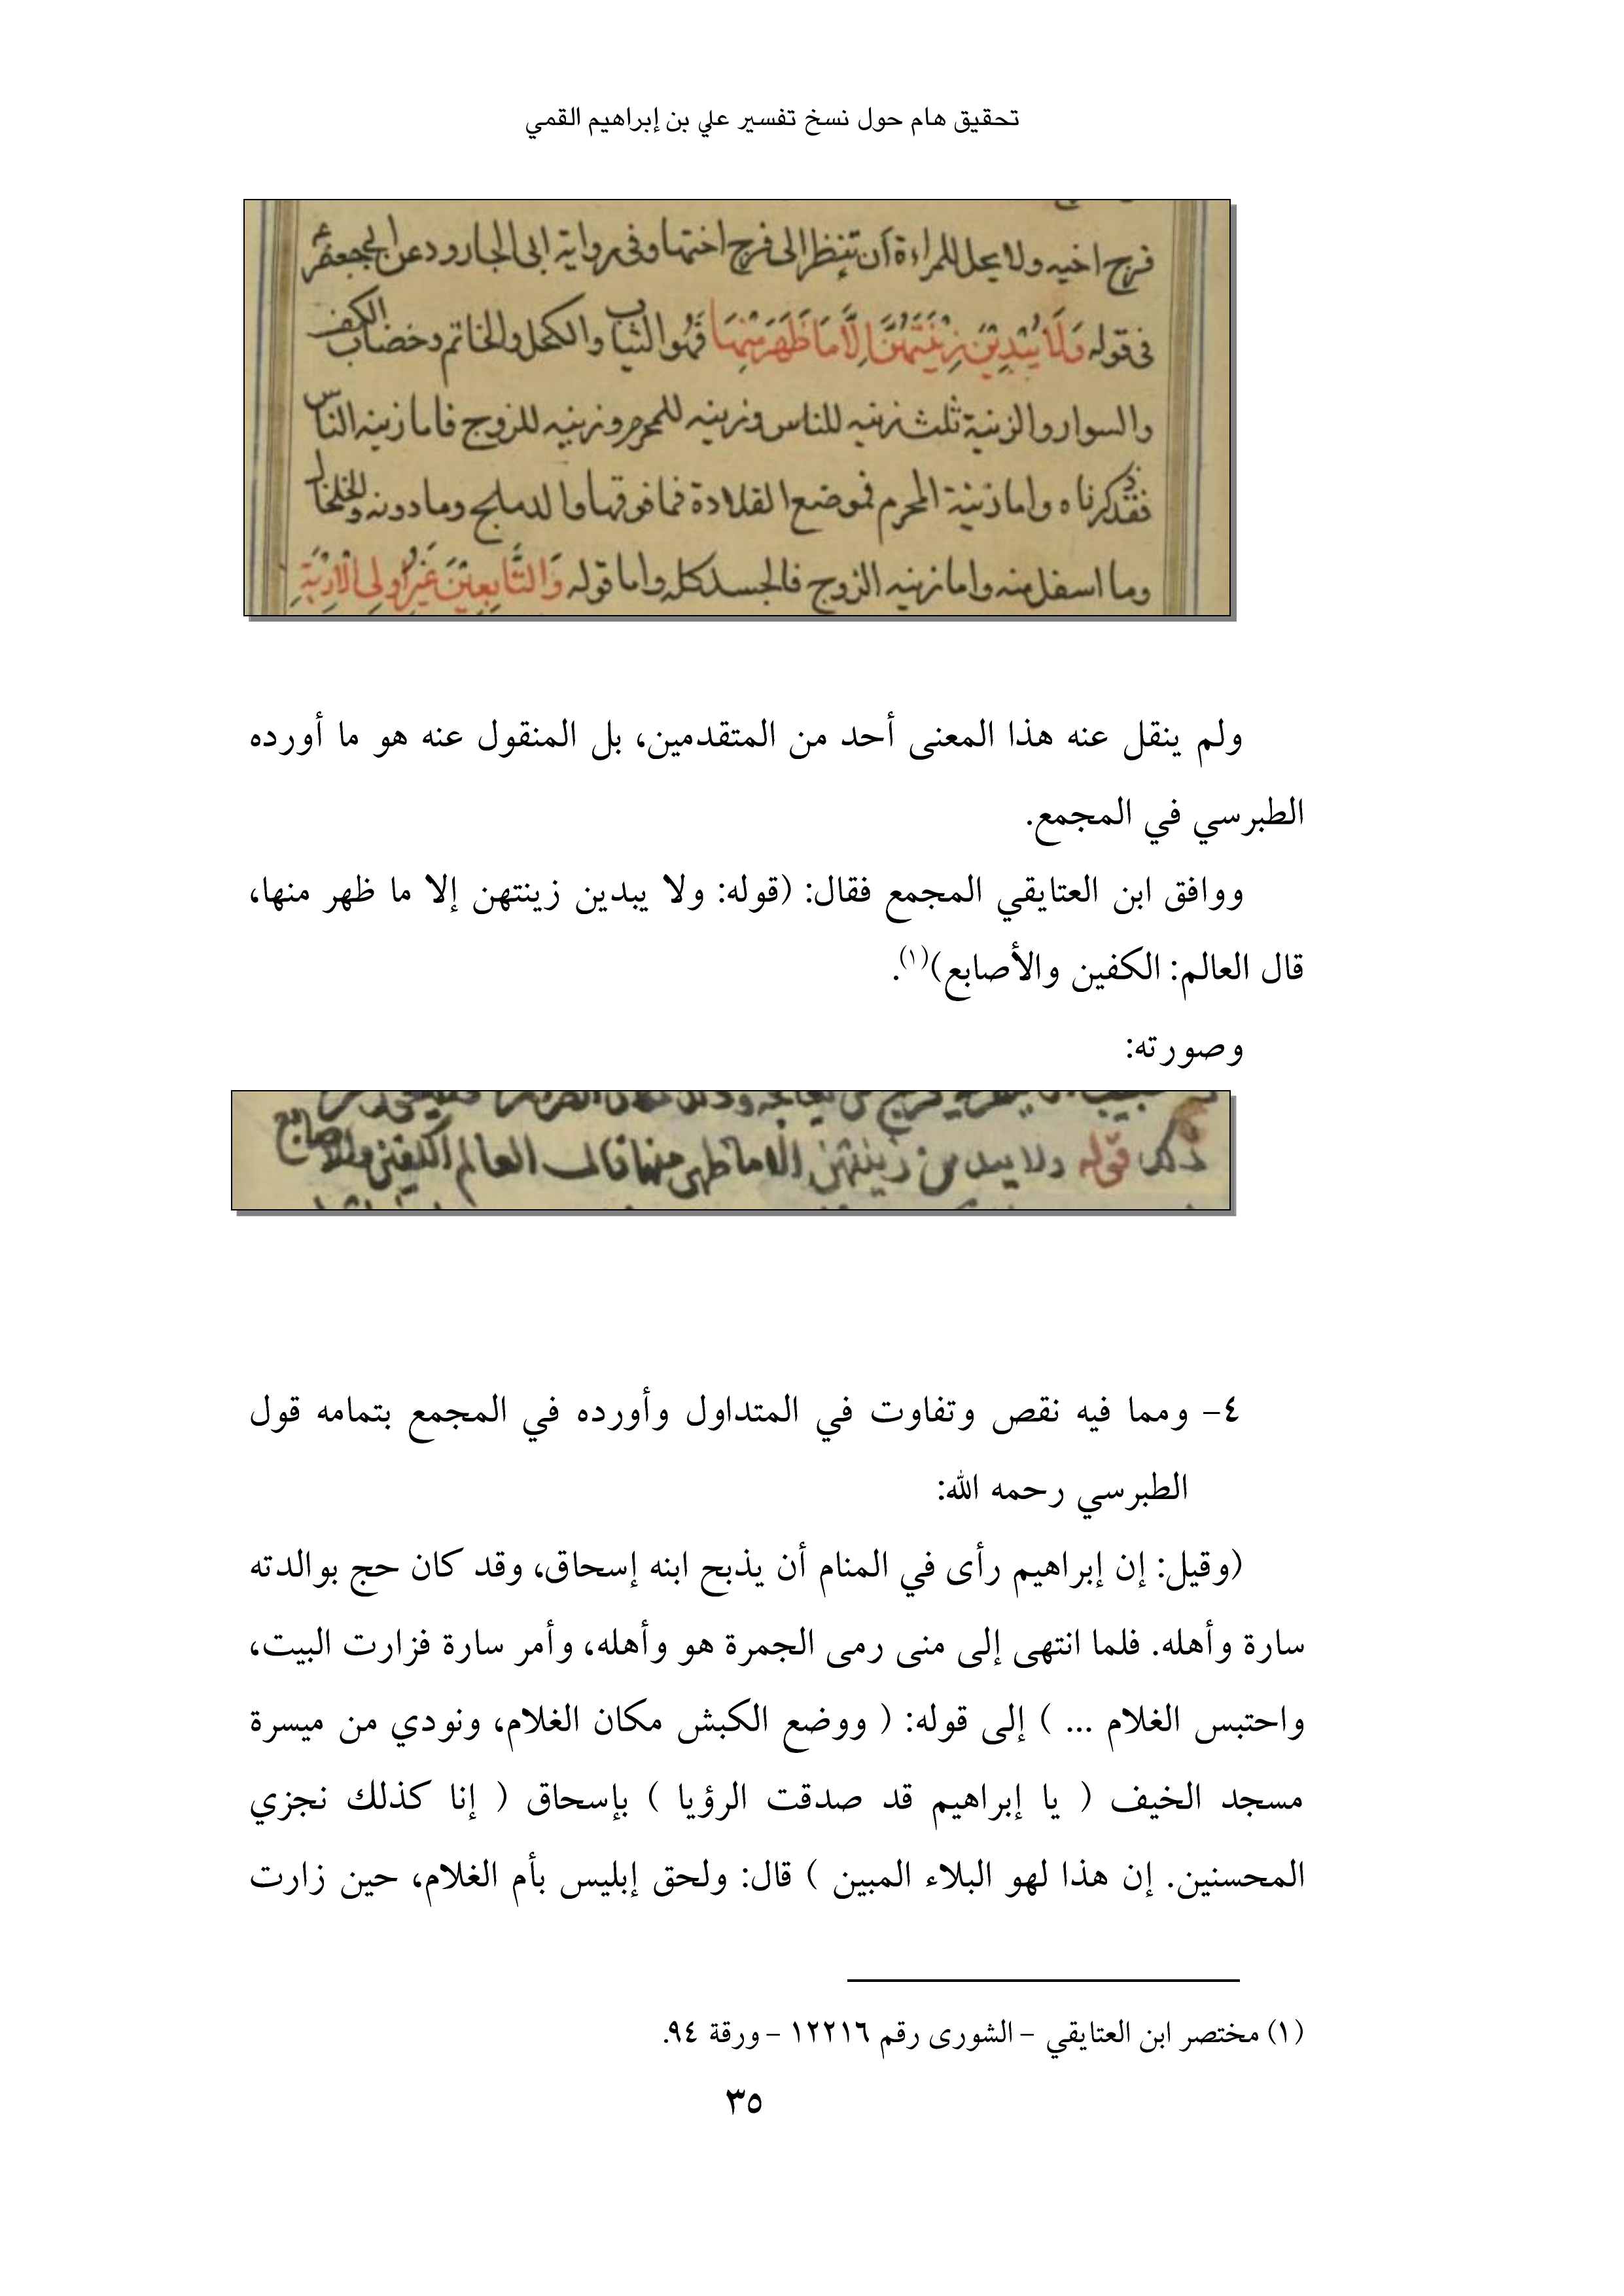 تحقيق هام حول نسخ تفسير علي بن إبراهيم القمي
فرج اخيه ولا يحل للمراءة أن تنظر الى فرج اختها وفى رواية ابى الجارود عن ابى جعفر ع
فى قوله وَلَا يُبْدِيْنَ زِيْنَتَهُنَّ اِلَّا مَا ظَهَرَ مِنْهَا فَهُو الثياب والكحل والخاتم وخضاب الكف
والسوار والزينة ثلث زينه للناس وزينه للمحرم وزينه للزوج فاما زينه الناس
فقد ذكرناه واما زينة المحرم فموضع القلادة فما فوقها والدملج وما دونه والخلخال
وما اسفل منه واما زينه الزوج فالجسد كله واما قوله وَالتَّابِعِيْنَ غَيْرِ اُولِى الْاِرْبَةِ
ولم ينقل عنه هذا المعنى أحد من المتقدمين، بل المنقول عنه هو ما أورده
الطبرسي في المجمع.
ووافق ابن العتايقي المجمع فقال: (قوله: ولا يبدين زينتهن إلا ما ظهر منها،
قال العالم: الكفين والأصابع)(١).
وصورته:
ذلك قوله ولا يبدين زينتهن الا ما ظهر منها قال العالم الكفين والاصابع
٤- ومما فيه نقص وتفاوت في المتداول وأورده في المجمع بتمامه قول
الطبرسي رحمه الله:
(وقيل: إن إبراهيم رأى في المنام أن يذبح ابنه إسحاق، وقد كان حج بوالدته
سارة وأهله. فلما انتهى إلى منى رمى الجمرة هو وأهله، وأمر سارة فزارت البيت،
واحتبس الغلام ... ) إلى قوله: ( ووضع الكبش مكان الغلام، ونودي من ميسرة
مسجد الخيف ( يا إبراهيم قد صدقت الرؤيا ) بإسحاق ( إنا كذلك نجزي
المحسنين. إن هذا لهو البلاء المبين ) قال: ولحق إبليس بأم الغلام، حين زارت
(١) مختصر ابن العتايقي – الشورى رقم ١٢٢١٦ – ورقة ٩٤.
٣٥